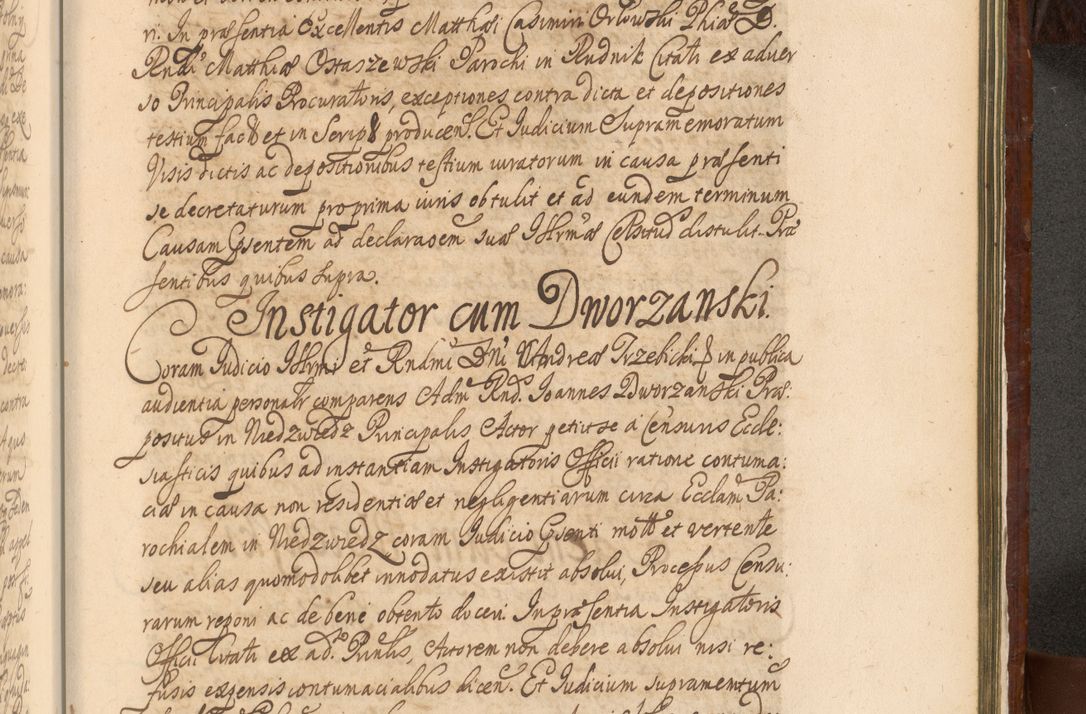 ri. In præsentia Excellentis Matthæi Casimiri Orłowski Phiæ D.
Rndi Matthiæ Ostaszewski Parochi in Rudnik Citati ex adver
so Principalis Procuratoris, exceptiones contra dicta et depositiones
testium fact et in Scrip producen. Et Iudicium Supramemoratum
Visis dictis ac depositionibus testium iuratorum in causa præsenti
se decretaturum pro prima iuris obtulit et ad eundem terminum
Causam Gsentem ad declaraoem suæ Illrmæ Celsitud distulit. Præ
sentibus quibus supra.
Instigator cum Dworzanski.
Coram Iudicio Illrmi et Rndmi Dni Andreæ Trzebicki in publica
audientia personalr comparens Adm Rnd. Ioannes Dworzanski Præ:
positus in Niedzwiedz Principalis Actor petiit se a Censuris Eccle:
siasticis quibus ad instantiam Instigatoris Officii ratione contuma:
ciæ in causa non residentiæ et negligentiarum circa Ecclam Pa:
rochialem in Niedzwiedz coram Iudicio Gsenti mott et vertente
seu alias quomodolibet innodatus existit absolui, Processus Censu:
rarum reponi ac de bene obtento doceri. In præsentia Instigatoris
Officii Citati ex ad. Punlis, Actorem non debere absolui nisi re:
fusis expensis contumacialibus dicen. Et Iudicium supramentum